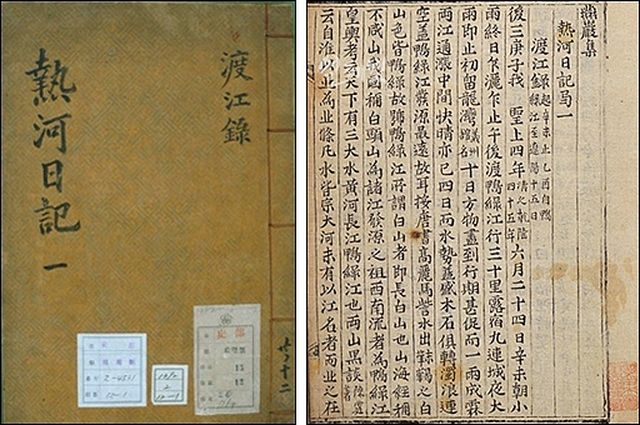 渡江錄
熱河日記 一
12-1
燕巖集
熱河日記 一
渡江錄 起辛未止乙酉自鴨綠江至遼陽十五日
後三庚子我 聖上四年 淸乾隆四十五年 六月二十四日辛未朝小
雨終日乍灑乍止午後渡鴨綠江行三十里露宿九連城夜大
雨即止初留龍灣 義州館名 十日方物盡到行期甚促而一雨成霖
兩江通漲中間快晴亦已四日而水勢益盛木石俱轉濁浪連
空盖鴨綠江發源最遠故耳按唐書高麗馬訾水出靺鞨之白
山色若鴨綠故號鴨綠江所謂白山者即長白山也山海經稱
不咸山我國稱白頭山為諸江發源之祖西南流者為鴨綠江
皇輿考云天下有三大水黃河長江鴨綠江也兩山墨談 陳霆著
云自淮以北為北條凡水皆宗大河未有以江名者而北之在